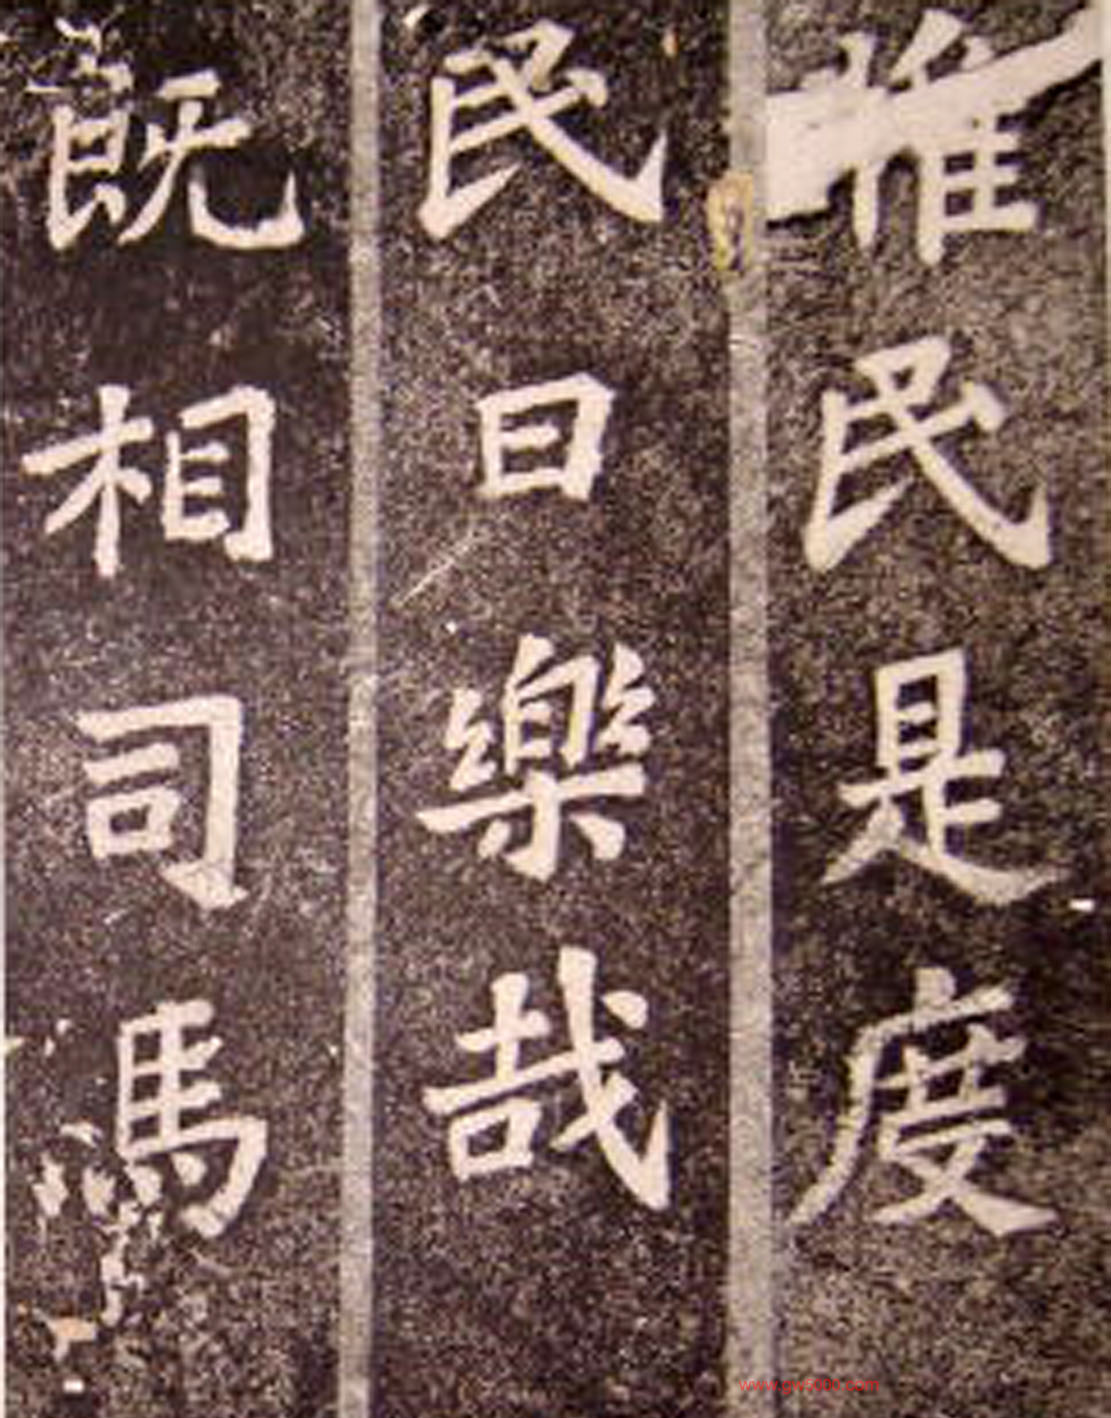 惟民是度
民曰樂哉
既相司馬
www.gw5000.com